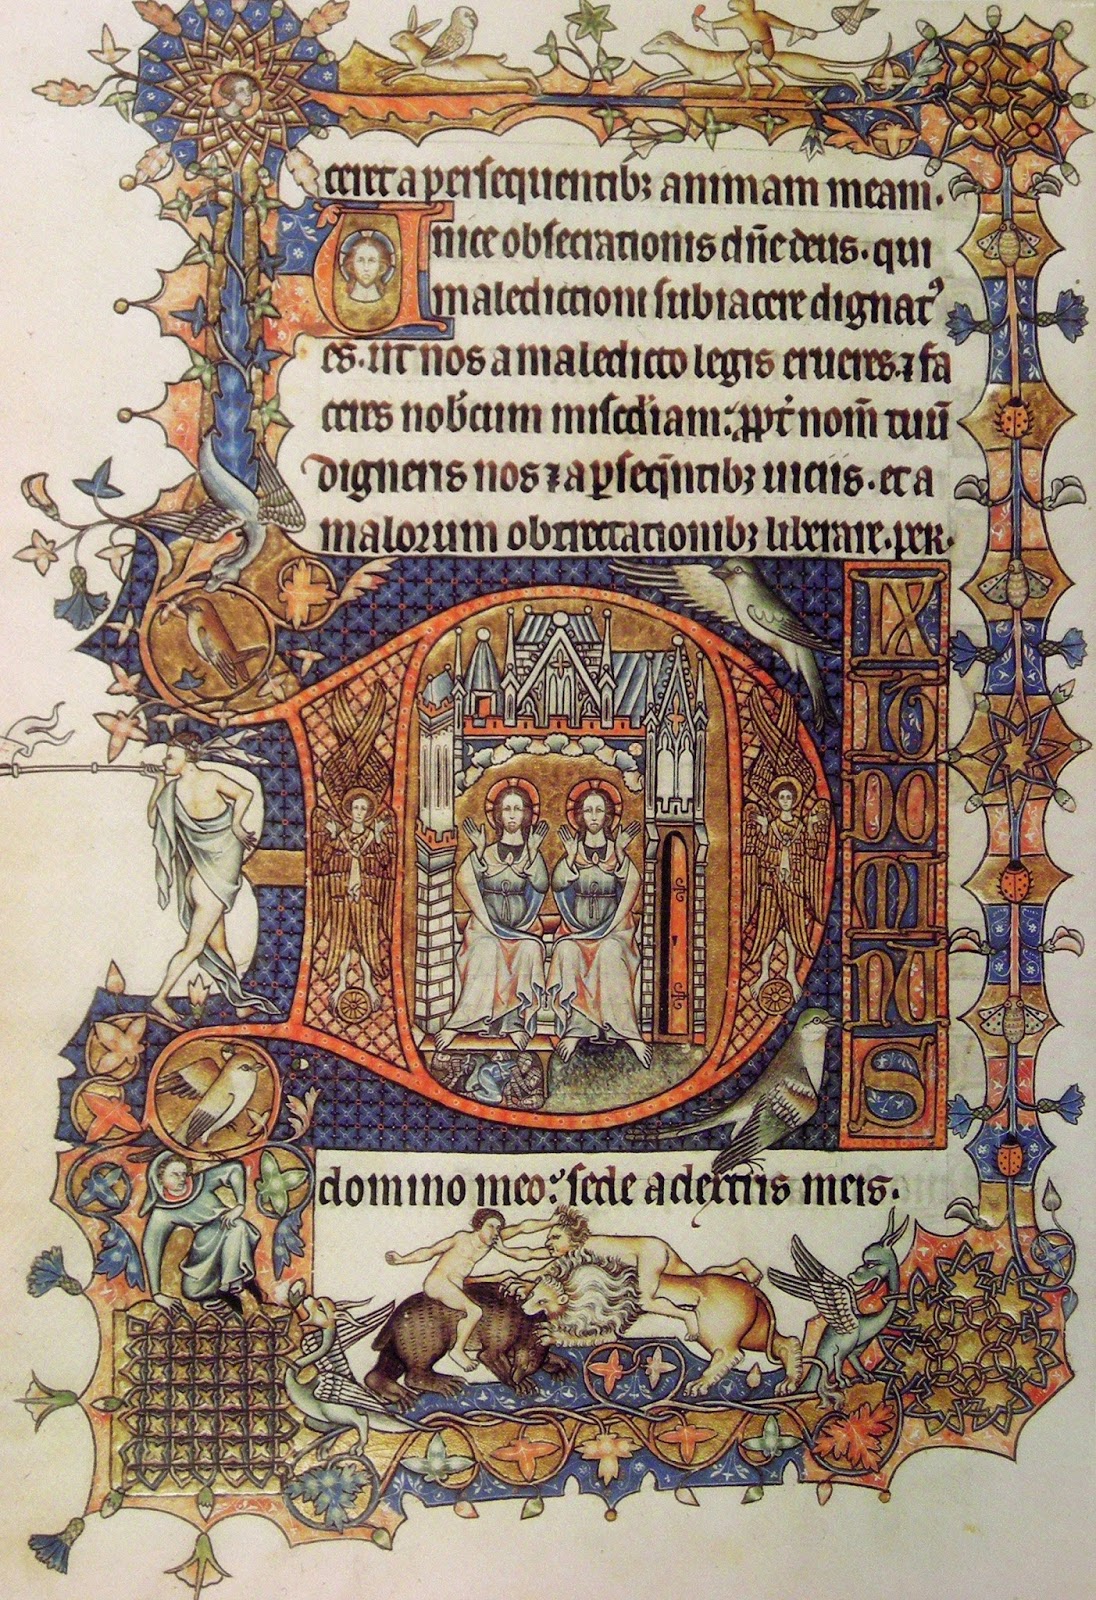 ceret a persequentibꝫ animam meam.
Unice obsecrationis dn̄e deus. qui
maledictioni subiacere dignatꝰ
es. ut nos a maledicto legis erueres. ⁊ fa
ceres nobˀcum miscdˀiam: ꝓptˀ nom̄ tuū
digneris nos ⁊ a ꝑseqn̄tibꝫ uiciis. et a
malorum obtrectationibꝫ liberare. per.
DIXIT DOMINUS
domino meo: sede a dextris meis.